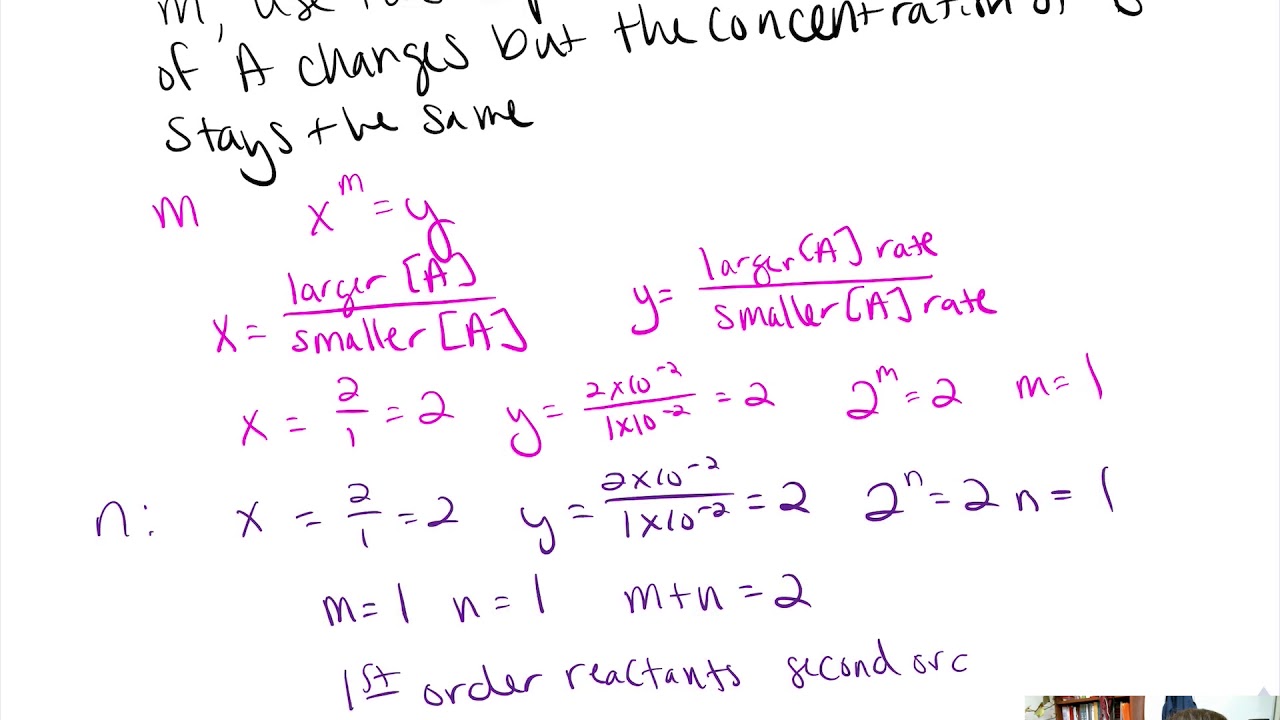 m, use
of A changes but the concentration of
stays the same
m x^m = y
x = larger [A] / smaller [A] y = larger [A] rate / smaller [A] rate
x = 2/1 = 2 y = 2x10^-2 / 1x10^-2 = 2 2^m = 2 m = 1
n: x = 2/1 = 2 y = 2x10^-2 / 1x10^-2 = 2 2^n = 2 n = 1
m = 1 n = 1 m+n = 2
1st order reactants second orc